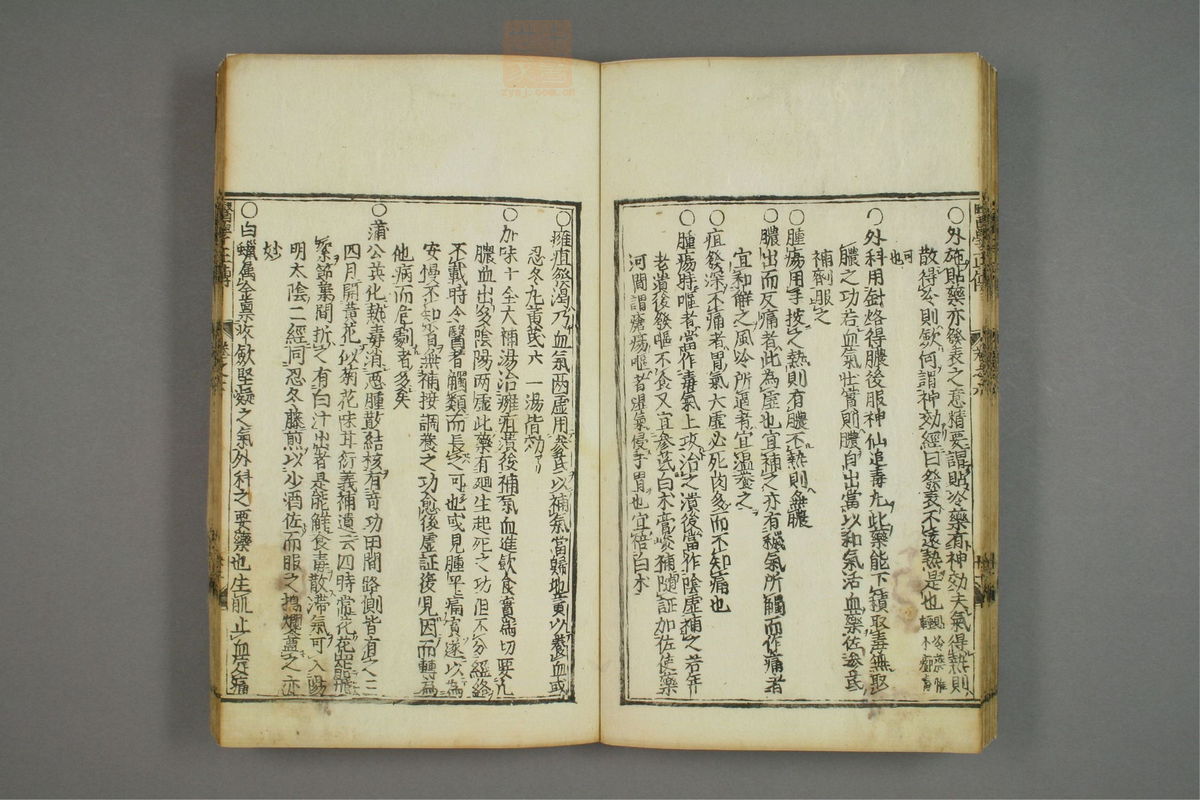 ○外施貼藥亦發表之意精要謂貼冷藥有神効夫氣得熱則
散得冷則歛何謂神効經曰發表不遠熱是也
○外科用針烙得膿後服神仙追毒丸此藥能下積取毒無取
膿之功若血氣壯實則膿自出當以和氣活血藥佐參芪
補劑服之
○腫瘍用手按之熱則有膿不熱則無膿
○膿出而反痛者此為虛也宜補之亦有穢氣所觸而作痛者
宜和解之風冷所逼者宜溫養之
○疽發深不痛者胃氣大虛必死肉多而不知痛也
○腫瘍時嘔者當作毒氣上攻治之潰後當作陰虛補之若年
老潰後發嘔不食又宜參芪白朮膏峻補隨証加佐使藥
河間謂瘡瘍嘔者濕氣侵于胃也宜倍白朮
○癰疽發渴乃血氣兩虛用參芪以補氣當歸地黃以養血或
忍冬丸黃芪六一湯皆効
○加味十全大補湯治癰疽潰後補氣血進飲食實為切要凢
膿血出多陰陽兩虛此藥有廻生起死之功但不分經絡
不載時令醫者觸類而長之可也或見腫平痛寛遂以為
安慢不知省無補接調養之功愈後虛証復見因而轉為
他病而危劇者多矣
○蒲公英化熱毒消惡腫散結核有奇功田間路側皆有之三
四月開黃花似菊花味甘衍義補遺云四時常花花罷飛
絮節葉間折之有白汁出者是能觧食毒散滯氣可入陽
明太陰二經同忍冬藤煎以少酒佐而服之搗爛盦之亦
妙
○白蠟属金稟收歛堅凝之氣外科之要藥也生肌止血定痛